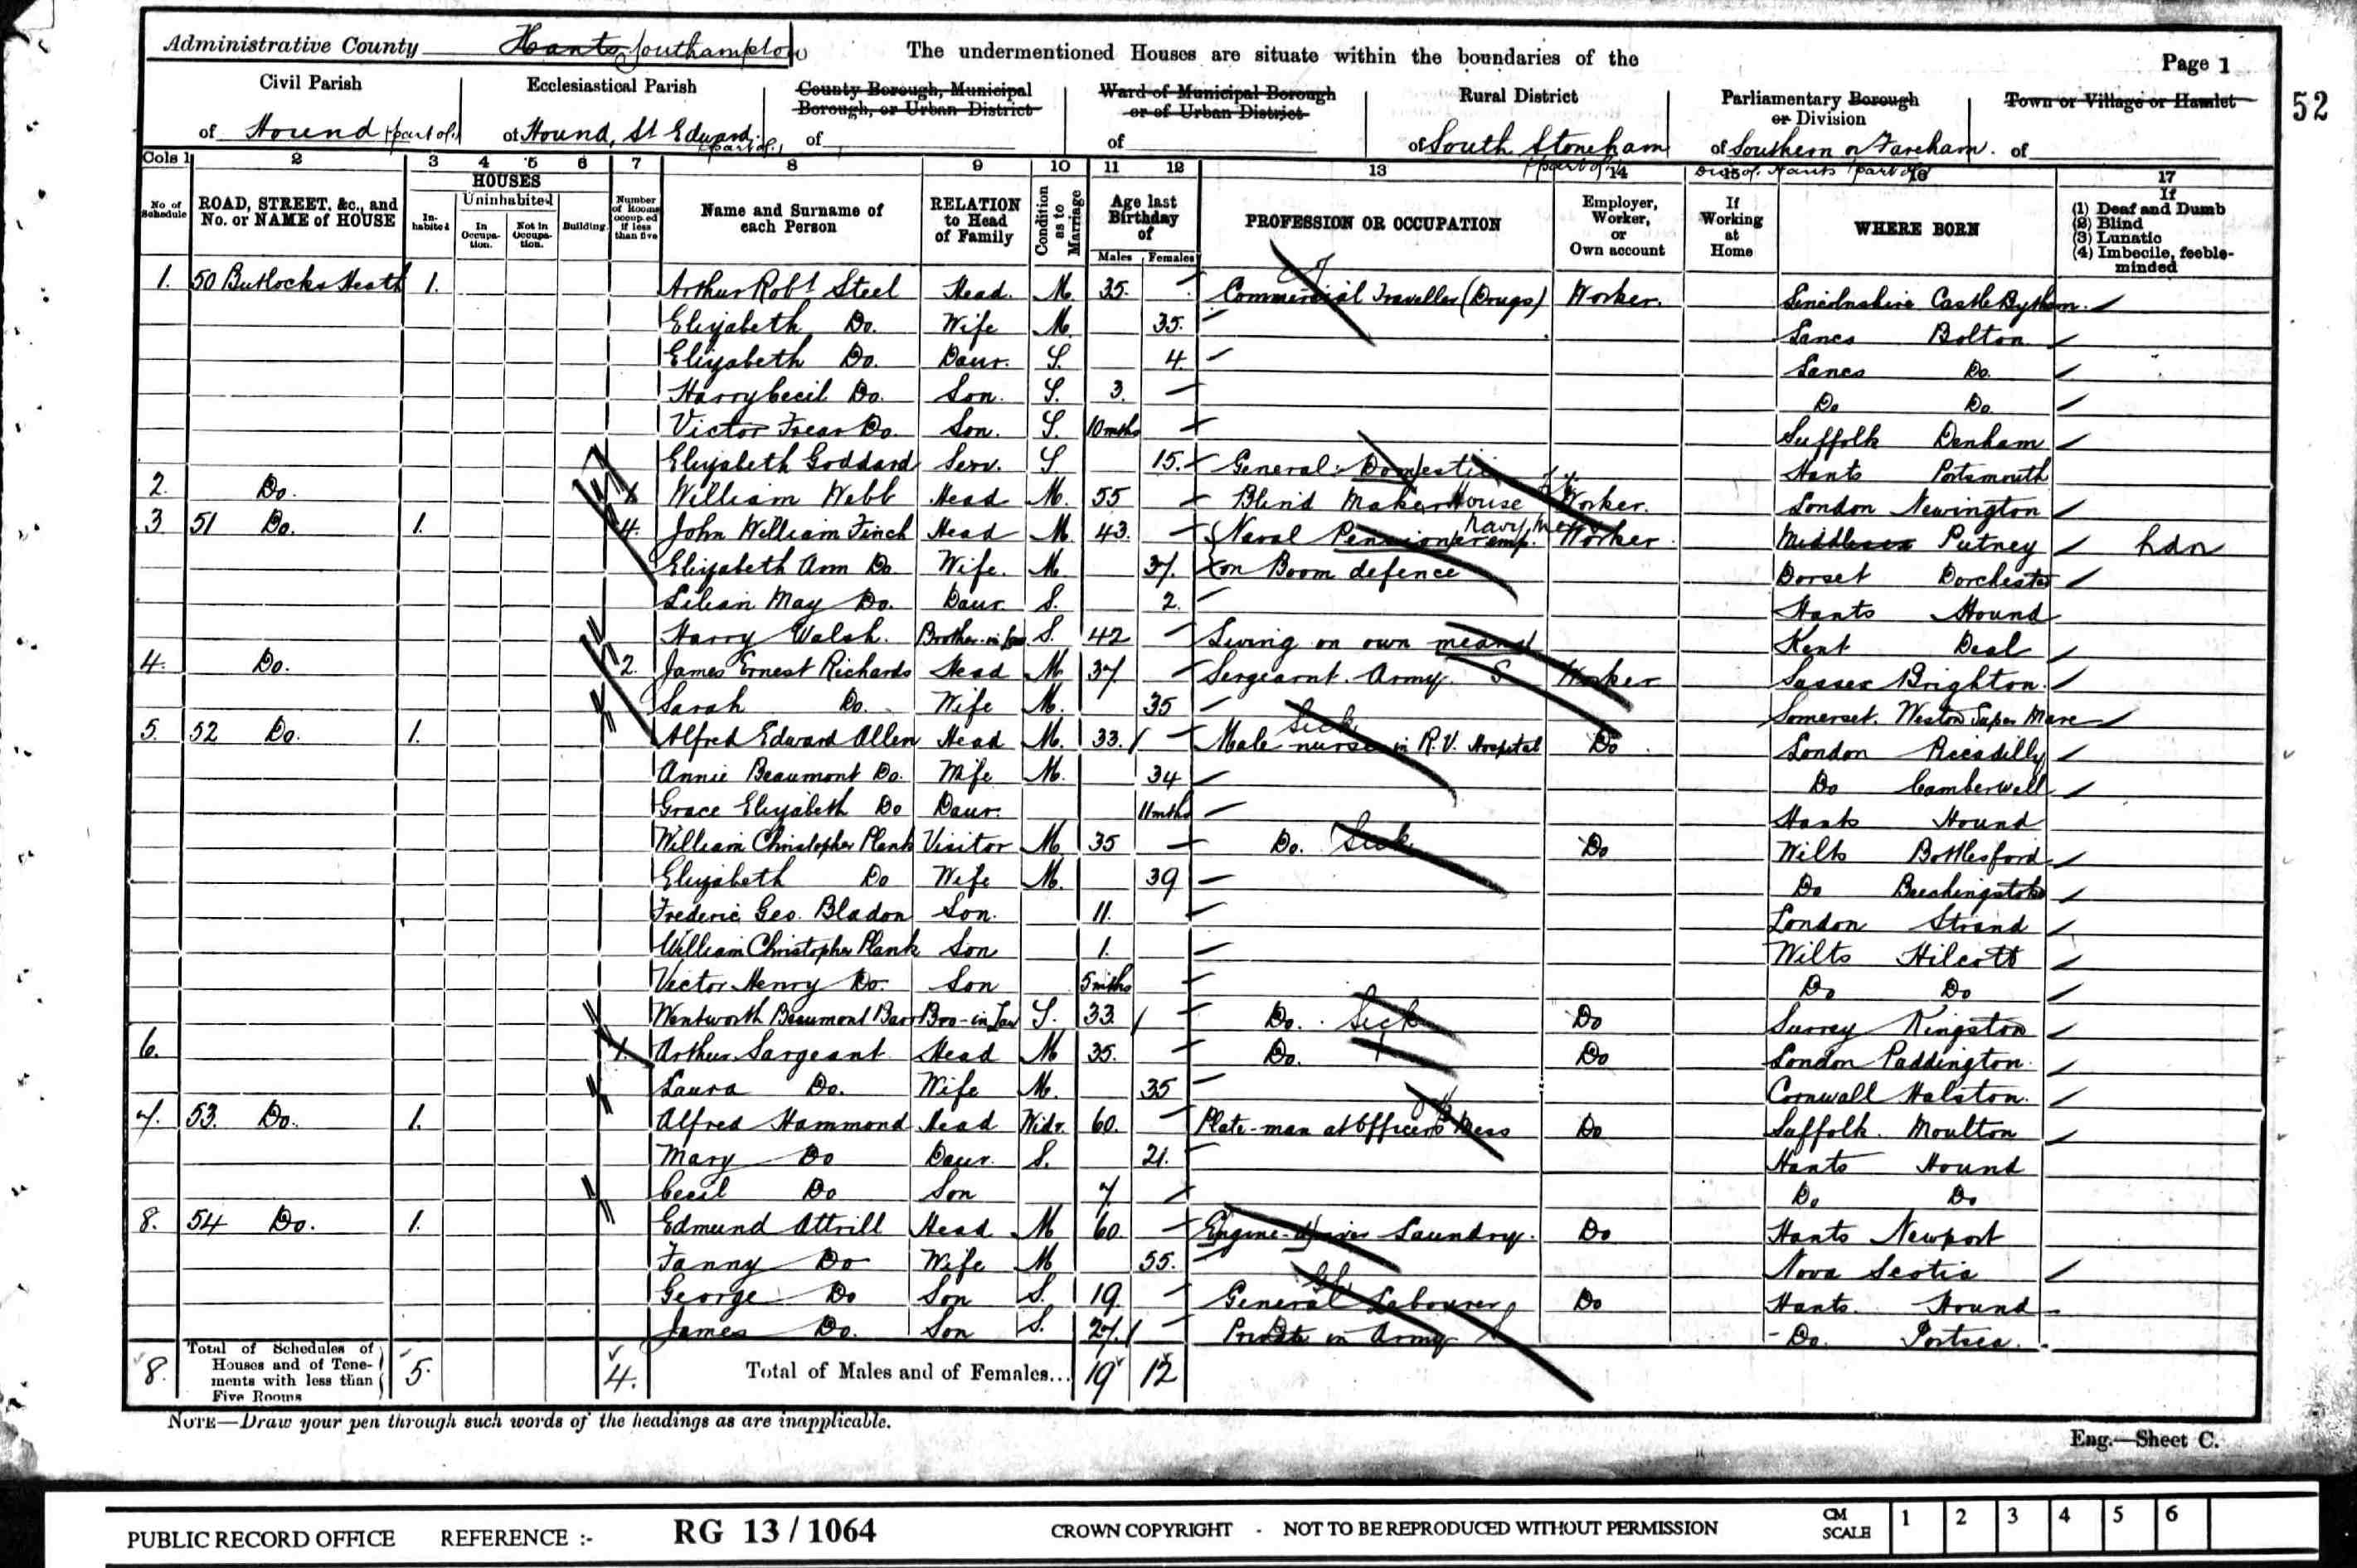 Administrative County Hants Southampton The undermentioned Houses are situate within the boundaries of the Page 1
52
Civil Parish Ecclesiastical Parish County Borough, Municipal Borough, or Urban District Ward of Municipal Borough or of Urban District Rural District Parliamentary Borough or Division Town or Village or Hamlet
of Hound (part of) of Hound, St Edward (part of) of of of South Stoneham (part of) of Southern or Fareham Div. of Hants (part of) of
Cols 1 2 3 4 5 6 7 8 9 10 11 12 13 14 15 16 17
No. of Schedule ROAD, STREET, &c., and No. or NAME of HOUSE HOUSES Inhabited Uninhabited In Occupation. Not in Occupation. Building Number of Rooms occupied if less than five Name and Surname of each Person RELATION to Head of Family Condition as to Marriage Age last Birthday of Males Females PROFESSION OR OCCUPATION Employer, Worker, or Own account If Working at Home WHERE BORN If (1) Deaf and Dumb (2) Blind (3) Lunatic (4) Imbecile, feeble-minded
1. 50 Butlocks Heath 1. Arthur Robt Steel Head. M. 35. Commercial Traveller (Drugs) Worker. Lincolnshire Castle Bytham
Elizabeth Do. Wife M. 35. Lancs Bolton
Elizabeth Do. Daur. S. 4. Lancs Do.
Harry Cecil Do. Son. S. 3. Do Do
Victor Do. Son. S. 10 mths Suffolk Denham
Elizabeth Goddard Serv. S 15. General Domestic Hants Portsmouth
2. Do. William Webb Head M. 55 Blind Maker House Worker. London Newington
3 51 Do. 1. 4. John William Finch Head M 43. Naval Pensioner emp. Navy Worker Middlesex Putney Ldn
Elizabeth Ann Do. Wife. M. 37. on Boom defence Dorset Dorchester
Lilian May Do. Daur. S. 2. Hants Hound
Harry Walsh. Brother-in-law S. 42 Living on own means Kent Deal
4. Do. 2. James Ernest Richards Head M. 37 Sergeant Army. S Worker Sussex Brighton.
Sarah Do. Wife M. 35 Somerset. Weston Super Mare
5. 52 Do. 1. Alfred Edward Allen Head M. 33. Male Sick nurse in R.V. Hospital Do London Piccadilly
Annie Beaumont Do. Wife M. 34 Do Camberwell
Grace Elizabeth Do Daur. 11 mths Hants Hound
William Christopher Plank Visitor M 35 Do. Sick Do Wilts Bottlesford
Elizabeth Do Wife M. 39 Do Beechingstoke
Frederic Geo. Bladon Son. 11. London Strand
William Christopher Plank Son 1. Wilts Hilcott
Victor Henry Do. Son 5 mths Do Do
Wentworth Beaumont Bro-in-Law S. 33. Do. Sick Do Surrey Kingston
6. 1. Arthur Sargeant Head M 35. Do. Do London Paddington.
Laura Do. Wife M. 35 Cornwall Halston.
7. 53. Do. 1. Alfred Hammond Head Widr. 60. Plate-man at Officers Mess Do Suffolk. Moulton
Mary Do Daur. S. 21. Hants Hound
Cecil Do Son 7 Do Do
8. 54 Do. 1. Edmund Attrill Head M 60. Engine-driver Laundry. Do Hants Newport
Fanny Do Wife M 55. Nova Scotia
George Do Son S. 19 General Labourer Do Hants. Hound
James Do. Son S. 27. Private in Army S Do. Portsea.
8. Total of Schedules of Houses and of Tenements with less than Five Rooms 5. 4. Total of Males and of Females... 19 12
NOTE—Draw your pen through such words of the headings as are inapplicable.
Eng.—Sheet C.
PUBLIC RECORD OFFICE REFERENCE :- RG 13 / 1064 CROWN COPYRIGHT - NOT TO BE REPRODUCED WITHOUT PERMISSION CM SCALE 1 2 3 4 5 6